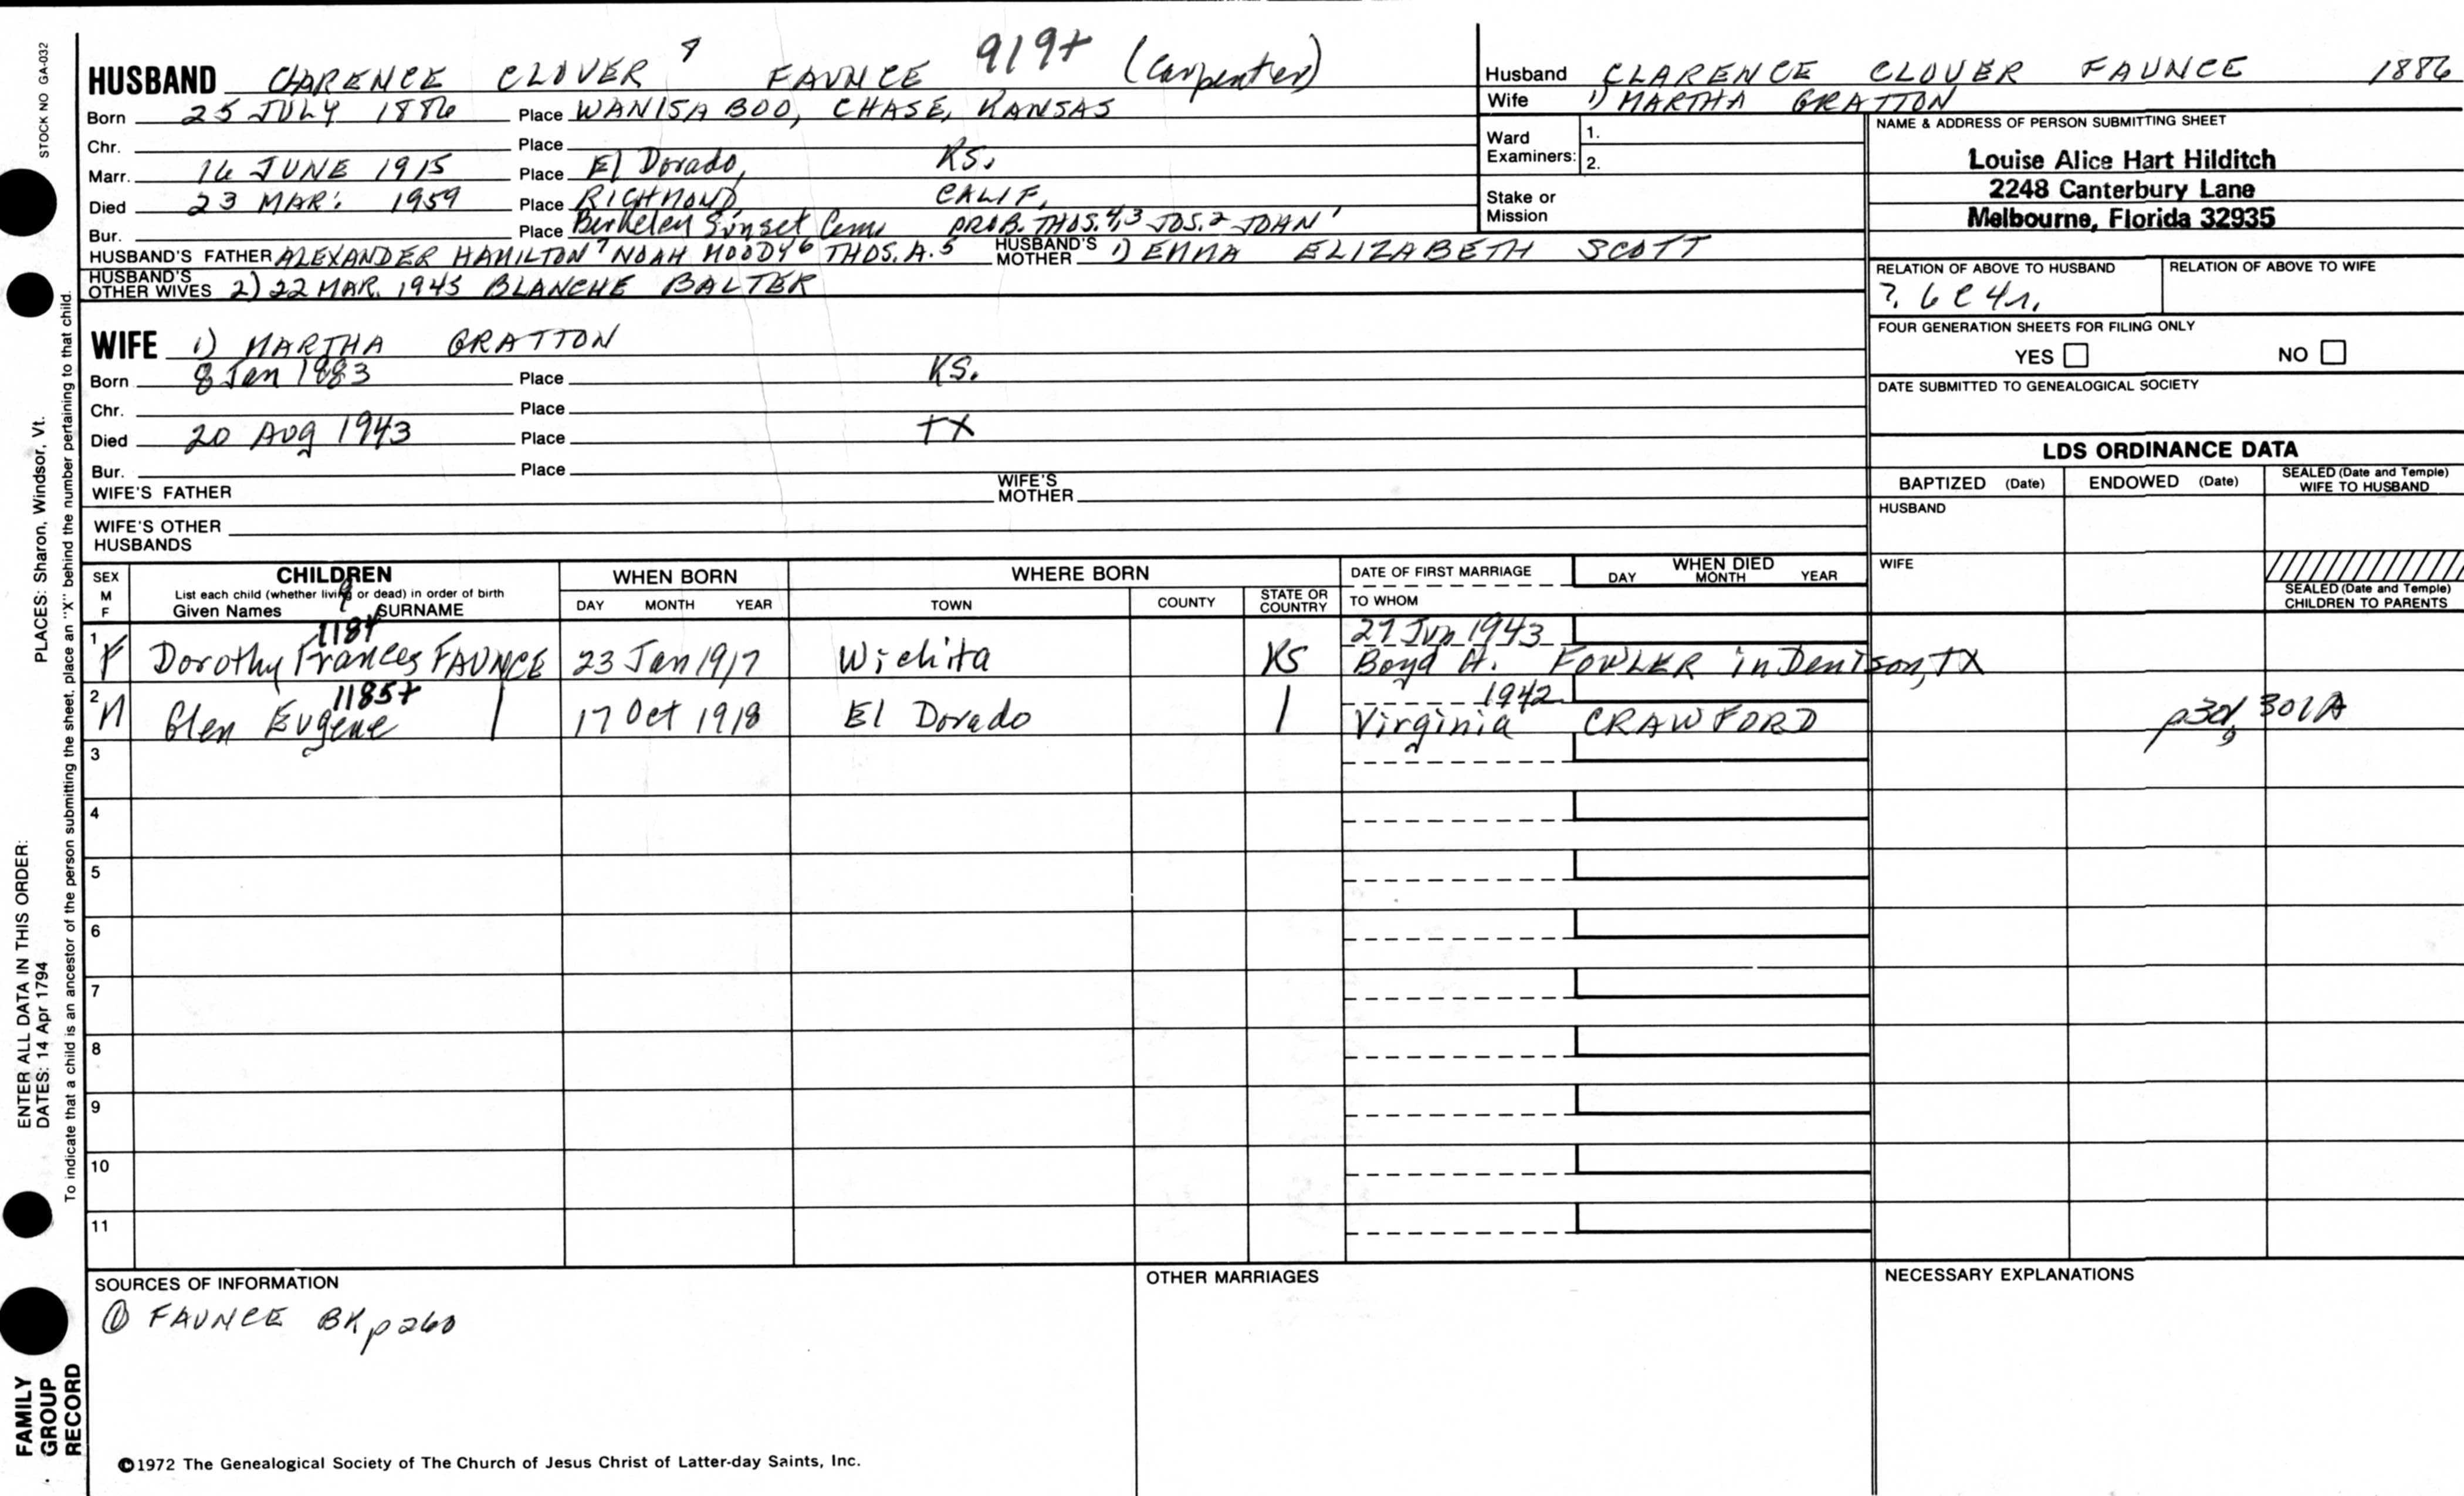 HUSBAND CLARENCE CLOVER 8 FAUNCE 919+ (Carpenter)
Born 25 JULY 1886 Place WANISA BOO, CHASE, KANSAS
Chr. Place
Marr. 16 JUNE 1915 Place El Dorado, KS.
Died 23 MAR. 1959 Place RICHMOND, CALIF.
Bur. Place Berkeley Sunset Cem PROB. THOS. 4,3 JOS. 2 JOHN 1
HUSBAND'S FATHER ALEXANDER HAMILTON 7 NOAH MOODY 6 THOS. A. 5 HUSBAND'S MOTHER 1) EMMA ELIZABETH SCOTT
HUSBAND'S OTHER WIVES 2) 22 MAR. 1945 BLANCHE BALTER
WIFE 1) MARTHA GRATTON
Born 8 Jan 1883 Place KS.
Chr. Place
Died 20 Aug 1943 Place TX
Bur. Place
WIFE'S FATHER WIFE'S MOTHER
WIFE'S OTHER HUSBANDS
Husband CLARENCE CLOVER FAUNCE 1886
Wife 1) MARTHA GRATTON
Ward Examiners: 1.
2.
Stake or Mission
NAME & ADDRESS OF PERSON SUBMITTING SHEET
Louise Alice Hart Hilditch
2248 Canterbury Lane
Melbourne, Florida 32935
RELATION OF ABOVE TO HUSBAND RELATION OF ABOVE TO WIFE
?. 6 C 4 r.
FOUR GENERATION SHEETS FOR FILING ONLY
YES NO
DATE SUBMITTED TO GENEALOGICAL SOCIETY
LDS ORDINANCE DATA
BAPTIZED (Date) ENDOWED (Date) SEALED (Date and Temple) WIFE TO HUSBAND
HUSBAND
WIFE
SEALED (Date and Temple) CHILDREN TO PARENTS
SEX M F CHILDREN WHEN BORN WHERE BORN DATE OF FIRST MARRIAGE WHEN DIED
List each child (whether living or dead) in order of birth
Given Names 9 SURNAME DAY MONTH YEAR TOWN COUNTY STATE OR COUNTRY TO WHOM DAY MONTH YEAR
1184 27 Jun 1943
1 F Dorothy Frances FAUNCE 23 Jan 1917 Wichita KS Boyd H. FOWLER in Denison, TX
1185+ 1942
2 M Glen Eugene | 17 Oct 1918 El Dorado | Virginia CRAWFORD p301, 301A
3
4
5
6
7
8
9
10
11
SOURCES OF INFORMATION OTHER MARRIAGES NECESSARY EXPLANATIONS
① FAUNCE BK p 260
©1972 The Genealogical Society of The Church of Jesus Christ of Latter-day Saints, Inc.
STOCK NO GA-032
PLACES: Sharon, Windsor, Vt.
ENTER ALL DATA IN THIS ORDER:
DATES: 14 Apr 1794
To indicate that a child is an ancestor of the person submitting the sheet, place an "X" behind the number pertaining to that child.
FAMILY
GROUP
RECORD